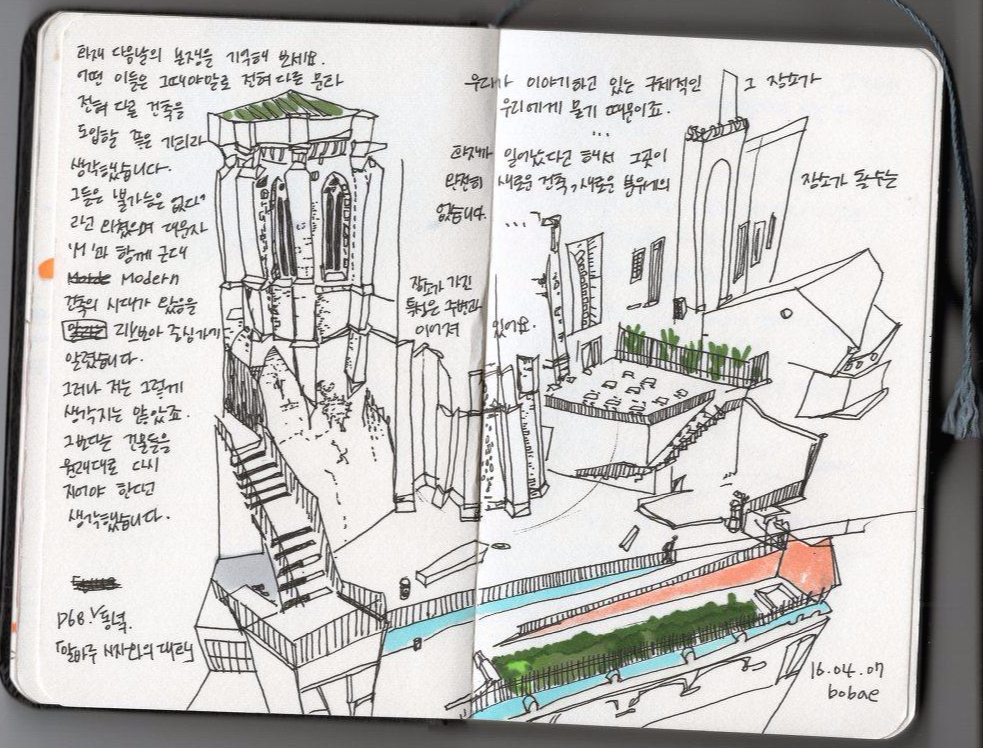 화재 다음날의 논쟁을 기억해 보세요.
어떤 이들은 그때야말로 전혀 다른 문라
전혀 다른 건축을
도입할 좋은 기회라
생각했습니다.
그들은 "불가능은 없다"
라고 외쳤으며 대문자
'M'과 함께 근대
Modern
건축의 시대가 왔음을
리스보아 중심가에
알렸습니다.
그러나 저는 그렇게
생각지는 않았죠.
그보다는 건물들을
원래대로 다시
지어야 한다고
생각했습니다.
P68. 동녘.
「알바루 시자와의 대화」
우리가 이야기하고 있는 구체적인 그 장소가
우리에게 묻기 때문이죠.
...
화재가 일어났다고 해서 그곳이
완전히 새로운 건축, 새로운 분위기의 장소가 될 수는
없습니다.
...
장소가 가진
특성은 주변과
이어져 있어요.
16.04.07
bobae